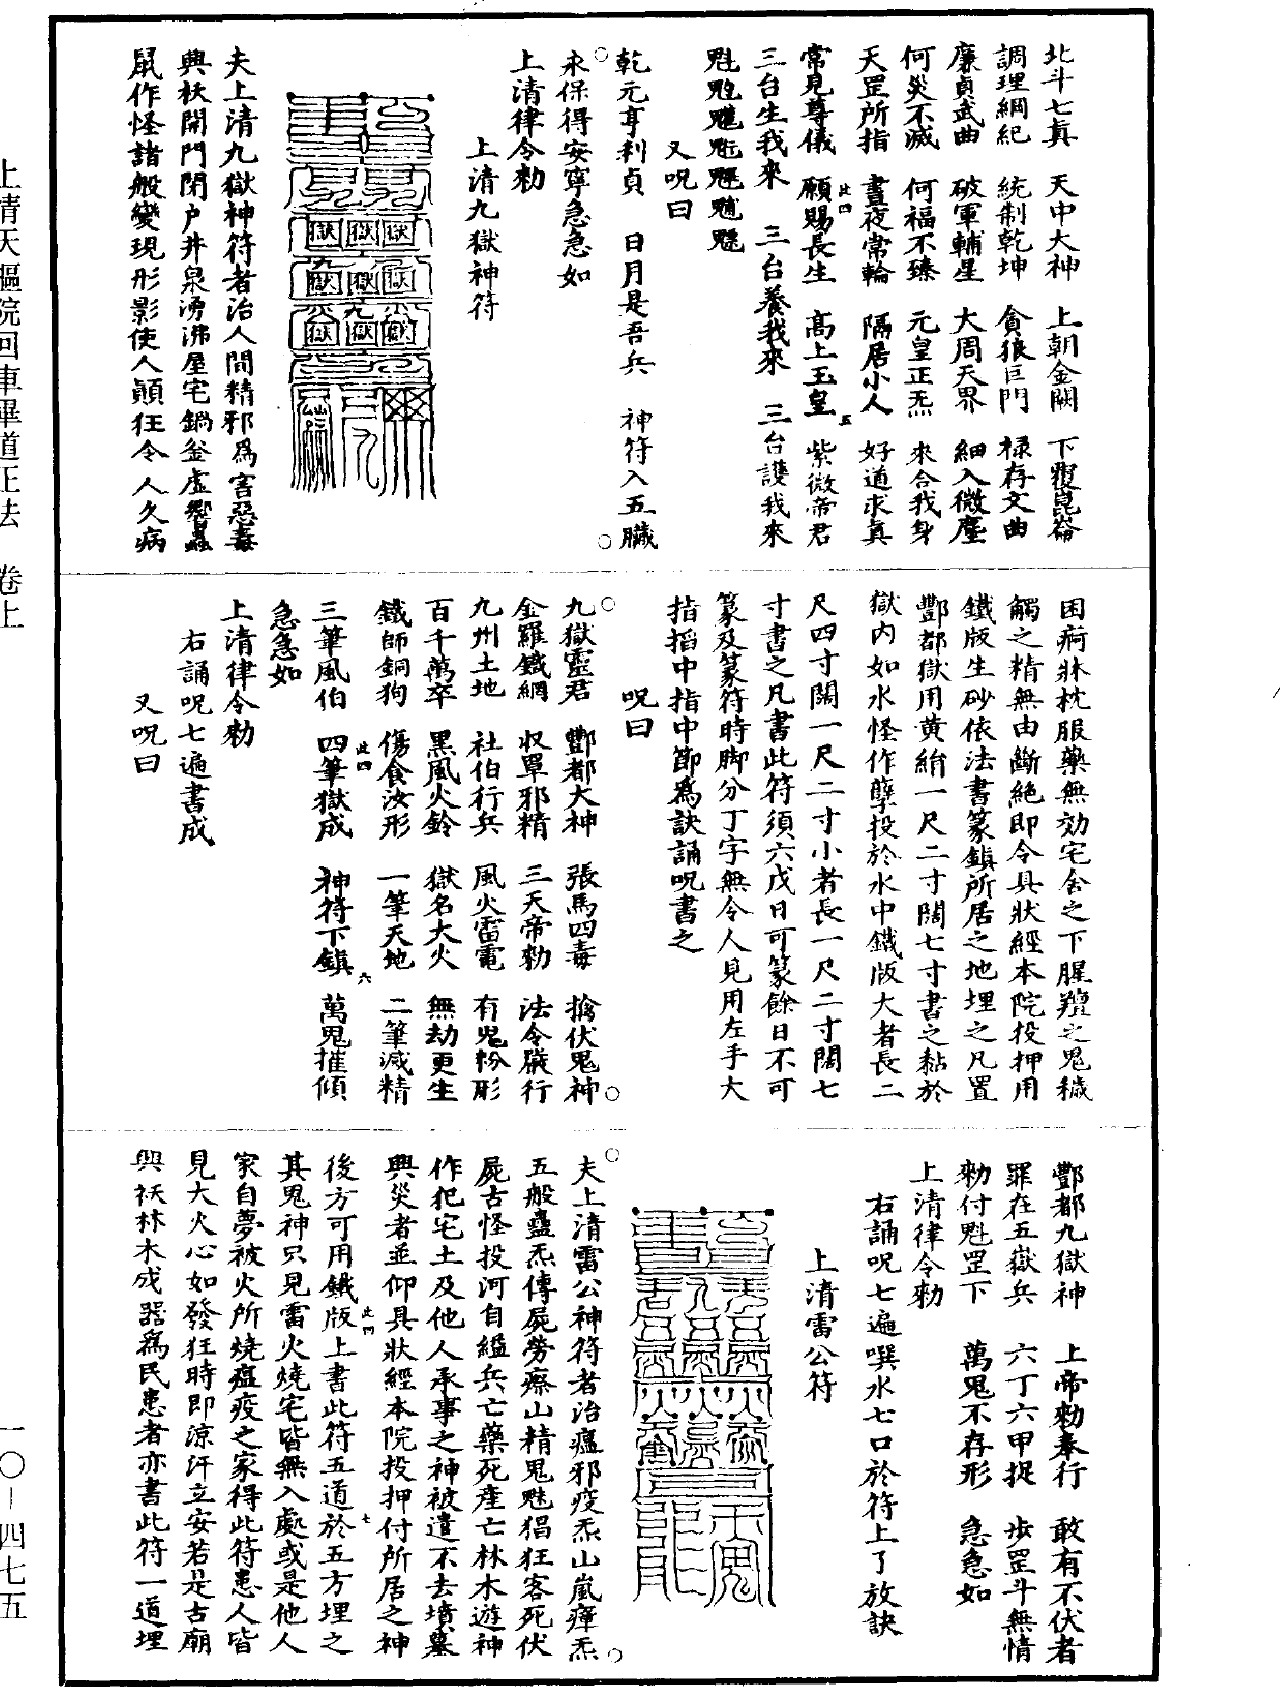 北斗七真　天中大神　上朝金闕　下覆崑崙
調理綱紀　統制乾坤　貪狼巨門　祿存文曲
廉貞武曲　破軍輔星　大周天界　細入微塵
何災不滅　何福不臻　元皇正炁　來合我身
天罡所指　晝夜常輪　隔居小人　好道求真
常見尊儀　願賜長生　高上玉皇　紫微帝君
三台生我來　三台養我來　三台護我來
魁𩲃䰢魓𩳐䰧魒
又呪曰
乾元亨利貞　日月是吾兵　神符入五臟
永保得安寧急急如
上清律令勑
上清九獄神符
夫上清九獄神符者治人間精邪為害惡毒
興袄開門閉户井泉湧沸屋宅鍋釜虛響蟲
鼠作怪諸般變現形影使人顛狂令人久病
困痾牀枕服藥無効宅舍之下腥羶之鬼穢
觸之精無由斷絕即令具狀經本院投押用
鐵版生砂依法書篆鎮所居之地埋之凡置
酆都獄用黄絹一尺二寸闊七寸書之黏於
獄内如水怪作孽投於水中鐵版大者長二
尺四寸闊一尺二寸小者長一尺二寸闊七
寸書之凡書此符須六戊日可篆餘日不可
篆及篆符時脚分丁字無令人見用左手大
指掐中指中節為訣誦呪書之
呪曰
九獄靈君　酆都大神　張馬四毒　擒伏鬼神
金羅鐵網　収罩邪精　三天帝勑　法令嚴行
九州土地　社伯行兵　風火雷電　有鬼粉形
百千萬卒　黑風火鈴　獄名大火　無劫更生
鐵師銅狗　傷食汝形　一筆天地　二筆滅精
三筆風伯　四筆獄成　神符下鎮　萬鬼摧傾
急急如
上清律令勑
右誦呪七遍書成
又呪曰
酆都九獄神　上帝勑奉行　敢有不伏者
罪在五嶽兵　六丁六甲捉　步罡斗無情
勑付魁罡下　萬鬼不存形　急急如
上清律令勑
右誦呪七遍噀水七口於符上了放訣
上清雷公符
夫上清雷公神符者治瘟邪疫炁山嵐瘴炁
五般蠱炁傳屍勞瘵山精鬼魅猖狂客死伏
屍古怪投河自縊兵亡藥死產亡林木遊神
作犯宅土及他人承事之神被遣不去墳墓
興災者並仰具狀經本院投押付所居之神
後方可用鐵版上書此符五道於五方埋之
其鬼神只見雷火燒宅皆無入處或是他人
家自夢被火所燒瘟疫之家得此符患人皆
見大火心如發狂時即涼汗立安若是古廟
興袄林木成器為民患者亦書此符一道埋
上清天樞院回車畢道正法　卷上
一〇－四七五